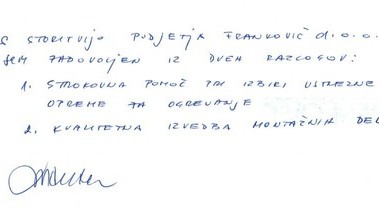 S STORITVIJO PODJETJA FRANKOVIČ d.o.o.
SEM ZADOVOLJEN IZ DVEH RAZLOGOV:
1. STROKOVNA POMOČ PRI IZBIRI USTREZNE
OPREME ZA OGREVANJE
2. KVALITETNA IZVEDBA MONTAŽNIH DEL